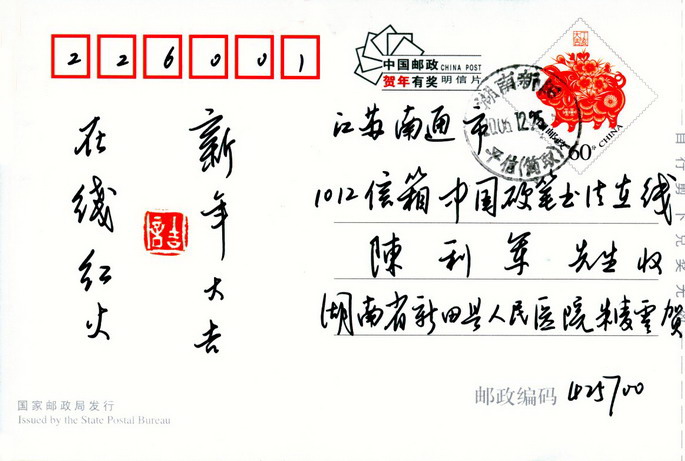 226001
中国邮政 CHINA POST
贺年有奖 明信片
湖南新田
2006.12.25
平信(筒取)
60分 CHINA
新年大吉
在线红火
江苏南通市
1012信箱中国硬笔书法在线
陳利军 先生收
湖南省新田县人民医院 凌雲贺
邮政编码 425700
国家邮政局发行
Issued by the State Postal Bureau